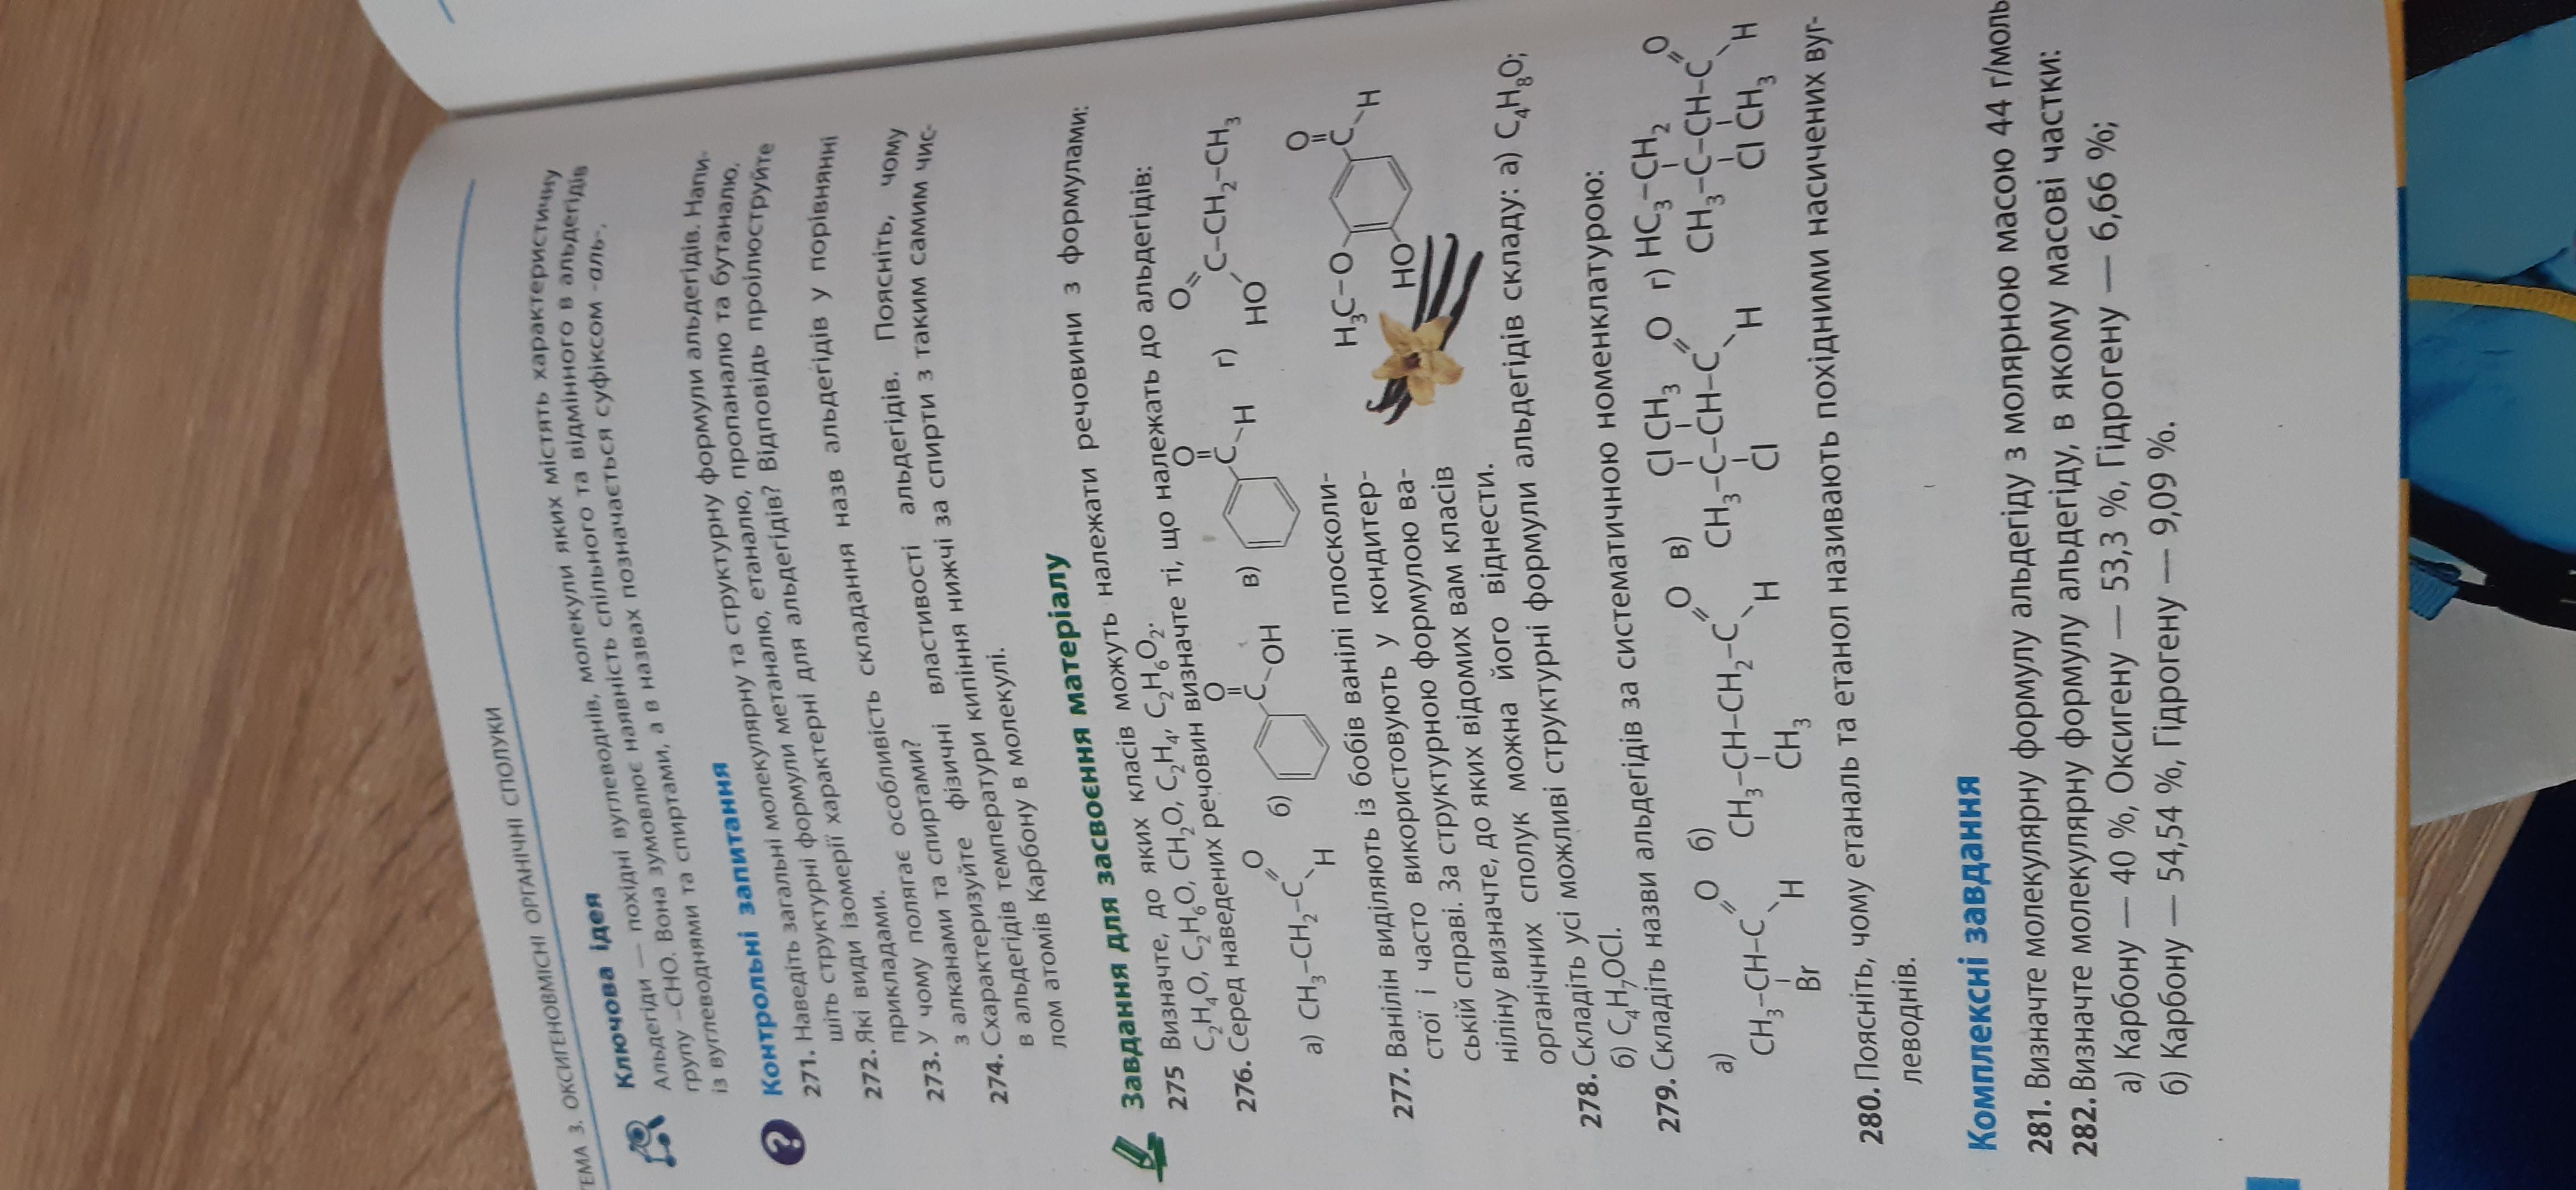 ТЕМА 3. ОКСИГЕНОВМІСНІ ОРГАНІЧНІ СПОЛУКИ
Ключова ідея
Альдегіди — похідні вуглеводнів, молекули яких містять характеристичну
групу –CHO. Вона зумовлює наявність спільного та відмінного в альдегідів
із вуглеводнями та спиртами, а в назвах позначається суфіксом -аль-.
Контрольні запитання
271. Наведіть загальні молекулярну та структурну формули альдегідів. Напи-
шіть структурні формули метаналю, етаналю, пропаналю та бутаналю.
272. Які види ізомерії характерні для альдегідів? Відповідь проілюструйте
прикладами.
273. У чому полягає особливість складання назв альдегідів у порівнянні
з алканами та спиртами?
274. Схарактеризуйте фізичні властивості альдегідів. Поясніть, чому
в альдегідів температури кипіння нижчі за спирти з таким самим чис-
лом атомів Карбону в молекулі.
Завдання для засвоєння матеріалу
275 Визначте, до яких класів можуть належати речовини з формулами:
C₂H₄O, C₂H₆O, CH₂O, C₂H₄, C₂H₆O₂.
276. Серед наведених речовин визначте ті, що належать до альдегідів:
а) CH₃–CH₂–C O H б) C O OH в) C O H г) O HO C–CH₂–CH₃
277. Ванілін виділяють із бобів ванілі плосколи-
стої і часто використовують у кондитер-
ській справі. За структурною формулою ва-
ніліну визначте, до яких відомих вам класів
органічних сполук можна його віднести.
H₃C–O HO C O H
278. Складіть усі можливі структурні формули альдегідів складу: а) C₄H₈O;
б) C₄H₇OCl.
279. Складіть назви альдегідів за систематичною номенклатурою:
а) CH₃–CH–C O H Br
б) CH₃–CH–CH₂–C O H CH₃
в) Cl CH₃ CH₃–C–CH–C O H Cl
г) HC₃–CH₂ CH₃–C–CH–C O H Cl CH₃
280. Поясніть, чому етаналь та етанол називають похідними насичених вуг-
леводнів.
Комплексні завдання
281. Визначте молекулярну формулу альдегіду з молярною масою 44 г/моль
282. Визначте молекулярну формулу альдегіду, в якому масові частки:
а) Карбону — 40 %, Оксигену — 53,3 %, Гідрогену — 6,66 %;
б) Карбону — 54,54 %, Гідрогену — 9,09 %.